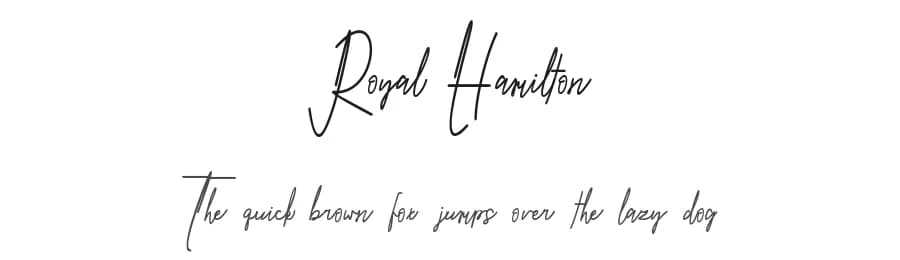 Royal Hamilton
The quick brown fox jumps over the lazy dog